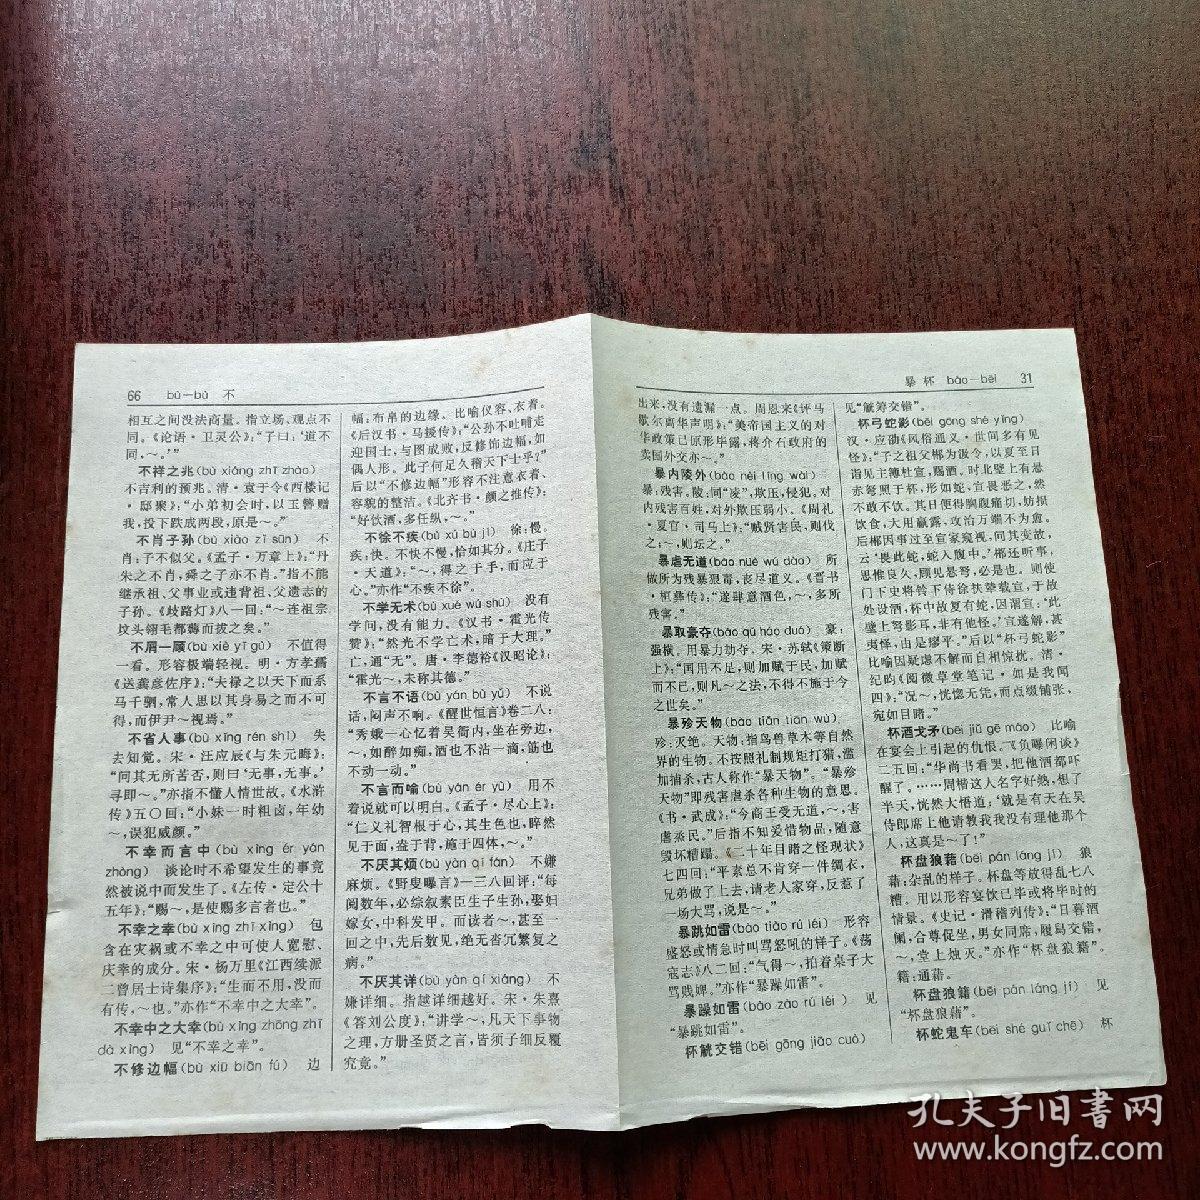 66 bù—bù 不
相互之间没法商量。指立场、观点不
同。《论语·卫灵公》:“子曰:‘道不
同,～。’”
不祥之兆(bù xiáng zhī zhào)
不吉利的预兆。清·袁于令《西楼记
·邸聚》:“小弟初会时,以玉簪赠
我,投下跌成两段,原是～。”
不肖子孙(bù xiào zǐ sūn) 不
肖:子不似父。《孟子·万章上》:“丹
朱之不肖,舜之子亦不肖。”指不能
继承祖、父事业或违背祖、父遗志的
子孙。《歧路灯》八一回:“～连祖宗
坟头翎毛都薅而拔之矣。”
不屑一顾(bù xiè yī gù) 不值得
一看。形容极端轻视。明·方孝孺
《送龚彦佐序》:“夫禄之以天下而系
马千驷,常人思以其身易之而不可
得,而伊尹～视焉。”
不省人事(bù xǐng rén shì) 失
去知觉。宋·汪应辰《与朱元晦》:
“问其无所苦否,则曰‘无事,无事。’
寻即～。”亦指不懂人情世故。《水浒
传》五〇回:“小妹一时粗卤,年幼
～,误犯威颜。”
不幸而言中(bù xìng ér yán
zhòng) 谈论时不希望发生的事竟
然被说中而发生了。《左传·定公十
五年》:“赐～,是使赐多言者也。”
不幸之幸(bù xìng zhī xìng) 包
含在灾祸或不幸之中可使人宽慰、
庆幸的成分。宋·杨万里《江西续派
二曾居士诗集序》:“生而不用,没而
有传,～也。”亦作“不幸中之大幸”。
不幸中之大幸(bù xìng zhōng zhī
dà xìng) 见“不幸之幸”。
不修边幅(bù xiū biān fú) 边
幅:布帛的边缘、比喻仪容、衣着。
《后汉书·马援传》:“公孙不吐哺走
迎国士,与图成败,反修饰边幅,如
偶人形。此子何足久稽天下士乎?”
后以“不修边幅”形容不注意衣着、
容貌的整洁。《北齐书·颜之推传》:
“好饮酒,多任纵,～。”
不徐不疾(bù xú bù jí) 徐:慢。
疾:快。不快不慢,恰如其分。《庄子
·天道》:“～,得之于手,而应于
心。”亦作“不疾不徐”。
不学无术(bù xué wú shù) 没有
学问,没有能力。《汉书·霍光传
赞》:“然光不学亡术,暗于大理。”
亡,通“无”。唐·李德裕《汉昭论》:
“霍光～,未称其德。”
不言不语(bù yán bù yǔ) 不说
话,闷声不响。《醒世恒言》卷二八:
“秀娥一心忆着吴衙内,坐在旁边,
～,如醉如痴,酒也不沾一滴,筯也
不动一动。”
不言而喻(bù yán ér yù) 用不
着说就可以明白。《孟子·尽心上》:
“仁义礼智根于心,其生色也,睟然
见于面,盎于背,施于四体,～。”
不厌其烦(bù yàn qí fán) 不嫌
麻烦。《野叟曝言》一三八回评:“每
阅数年,必综叙素臣生子生孙,娶妇
嫁女,中科发甲。而读者～,甚至一
回之中,先后数见,绝无沓冗繁复之
病。”
不厌其详(bù yàn qí xiáng) 不
嫌详细。指越详细越好。宋·朱熹
《答刘公度》:“讲学～,凡天下事物
之理,方册圣贤之言,皆须子细反覆
究竟。”
暴 杯 bào—bēi 31
出来,没有遗漏一点。周恩来《评马
歇尔离华声明》:“美帝国主义的对
华政策已原形毕露,蒋介石政府的
卖国外交亦～。”
暴内陵外(bào nèi líng wài)
暴:残害。陵:同“凌”,欺压,侵犯。对
内残害百姓,对外欺压弱小。《周礼
·夏官·司马上》:“贼贤害民,则伐
之;～,则坛之。”
暴虐无道(bào nüè wú dào) 所
做所为残暴狠毒,丧尽道义。《晋书
·桓彝传》:“遂肆意酒色,～,多所
残害。”
暴取豪夺(bào qǔ háo duó) 豪:
强横。用暴力劫夺。宋·苏轼《策断
上》:“国用不足,则加赋于民,加赋
而不已,则凡～之法,不得不施于今
之世矣。”
暴殄天物(bào tiǎn tiān wù)
殄:灭绝。天物:指鸟兽草木等自然
界的生物。不按照礼制规矩打猎,滥
加捕杀,古人称作“暴天物”。“暴殄
天物”即残害虐杀各种生物的意思。
《书·武成》:“今商王受无道,～;害
虐烝民。”后指不知爱惜物品,随意
毁坏糟蹋。《二十年目睹之怪现状》
七四回:“平素总不肯穿一件绸衣,
兄弟做了上去,请老人家穿,反惹了
一场大骂,说是～。”
暴跳如雷(bào tiào rú léi) 形容
盛怒或情急时叫骂怒吼的样子。《荡
寇志》八二回:“气得～,拍着桌子大
骂贱婢。”亦作“暴躁如雷”。
暴躁如雷(bào zào rú léi) 见
“暴跳如雷”。
杯觥交错(bēi gōng jiāo cuò)
见“觥筹交错”。
杯弓蛇影(bēi gōng shé yǐng)
汉·应劭《风俗通义·世间多有见
怪》:“子之祖父郴为汲令,以夏至日
诣见主簿杜宣,赐酒。时北壁上有悬
赤弩照于杯,形如蛇,宣畏恶之,然
不敢不饮。其日便得胸腹痛切,妨损
饮食,大用羸露,攻治万端不为愈。
后郴因事过至宣家窥视,问其变故,
云‘畏此蛇,蛇入腹中。’郴还听事,
思惟良久,顾见悬弩,必是也。则使
门下史将铃下侍徐扶辇载宣,于故
处设酒,杯中故复有蛇,因谓宣:‘此
壁上弩影耳,非有他怪。’宣遂解,甚
夷怿,由是瘳平。”后以“杯弓蛇影”
比喻因疑虑不解而自相惊扰。清·
纪昀《阅微草堂笔记·如是我闻
四》:“况～,恍惚无凭,而点缀铺张,
宛如目睹。”
杯酒戈矛(bēi jiǔ gē máo) 比喻
在宴会上引起的仇恨。《负曝闲谈》
二五回:“华尚书看罢,把他酒都吓
醒了。……周楷这人名字好熟,想了
半天,恍然大悟道:‘就是有天在吴
侍郎席上他请教我我没有理他那个
人,这真是～了!”
杯盘狼藉(bēi pán láng jí) 狼
藉:杂乱的样子。杯盘等放得乱七八
糟。用以形容宴饮已毕或将毕时的
情景。《史记·滑稽列传》:“日暮酒
阑,合尊促坐,男女同席,履舄交错,
～,堂上烛灭。”亦作“杯盘狼籍”。
籍:通藉。
杯盘狼籍(bēi pán láng jí) 见
“杯盘狼藉”。
杯蛇鬼车(bēi shé guǐ chē) 杯
孔夫子旧书网
www.kongfz.com